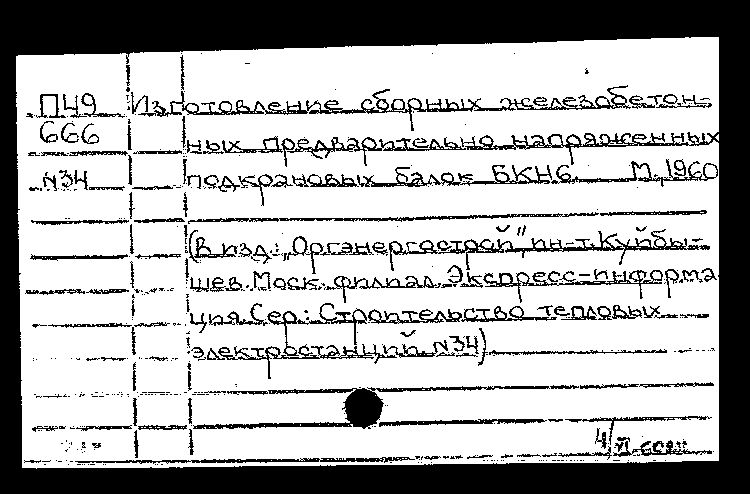 П49 Изготовление сборных железобетон-
666 ных предварительно напряженных
N34 подкрановых балок БКН6. М., 1960
(В изд.: „Оргэнергострой", ин-т. Куйбы-
шев. Моск. филиал. Экспресс-информа
ция. Сер.: Строительство тепловых
электростанций. N34)
4/VI-60